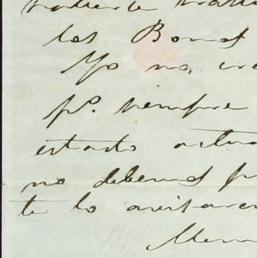 los Bonos
Yo no cre
p.º siempre
estado actua
no debemos p
te lo avisare